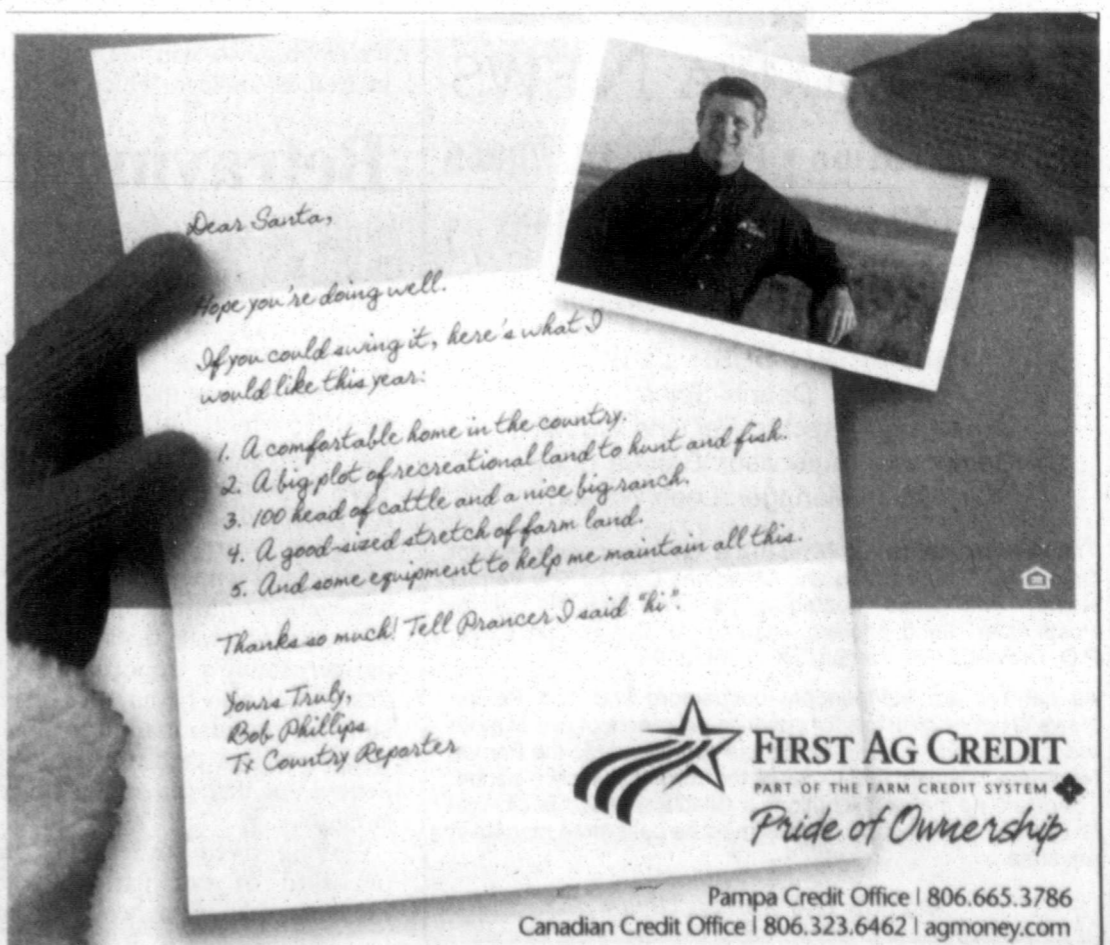 Dear Santa,
Hope you're doing well.
If you could swing it, here's what I
would like this year:
1. A comfortable home in the country.
2. A big plot of recreational land to hunt and fish.
3. 100 head of cattle and a nice big ranch.
4. A good-sized stretch of farm land.
5. And some equipment to help me maintain all this.
Thanks so much! Tell Prancer I said "hi".
Yours Truly,
Bob Phillips
Tx Country Reporter
FIRST AG CREDIT
PART OF THE FARM CREDIT SYSTEM
Pride of Ownership
Pampa Credit Office | 806.665.3786
Canadian Credit Office | 806.323.6462 | agmoney.com